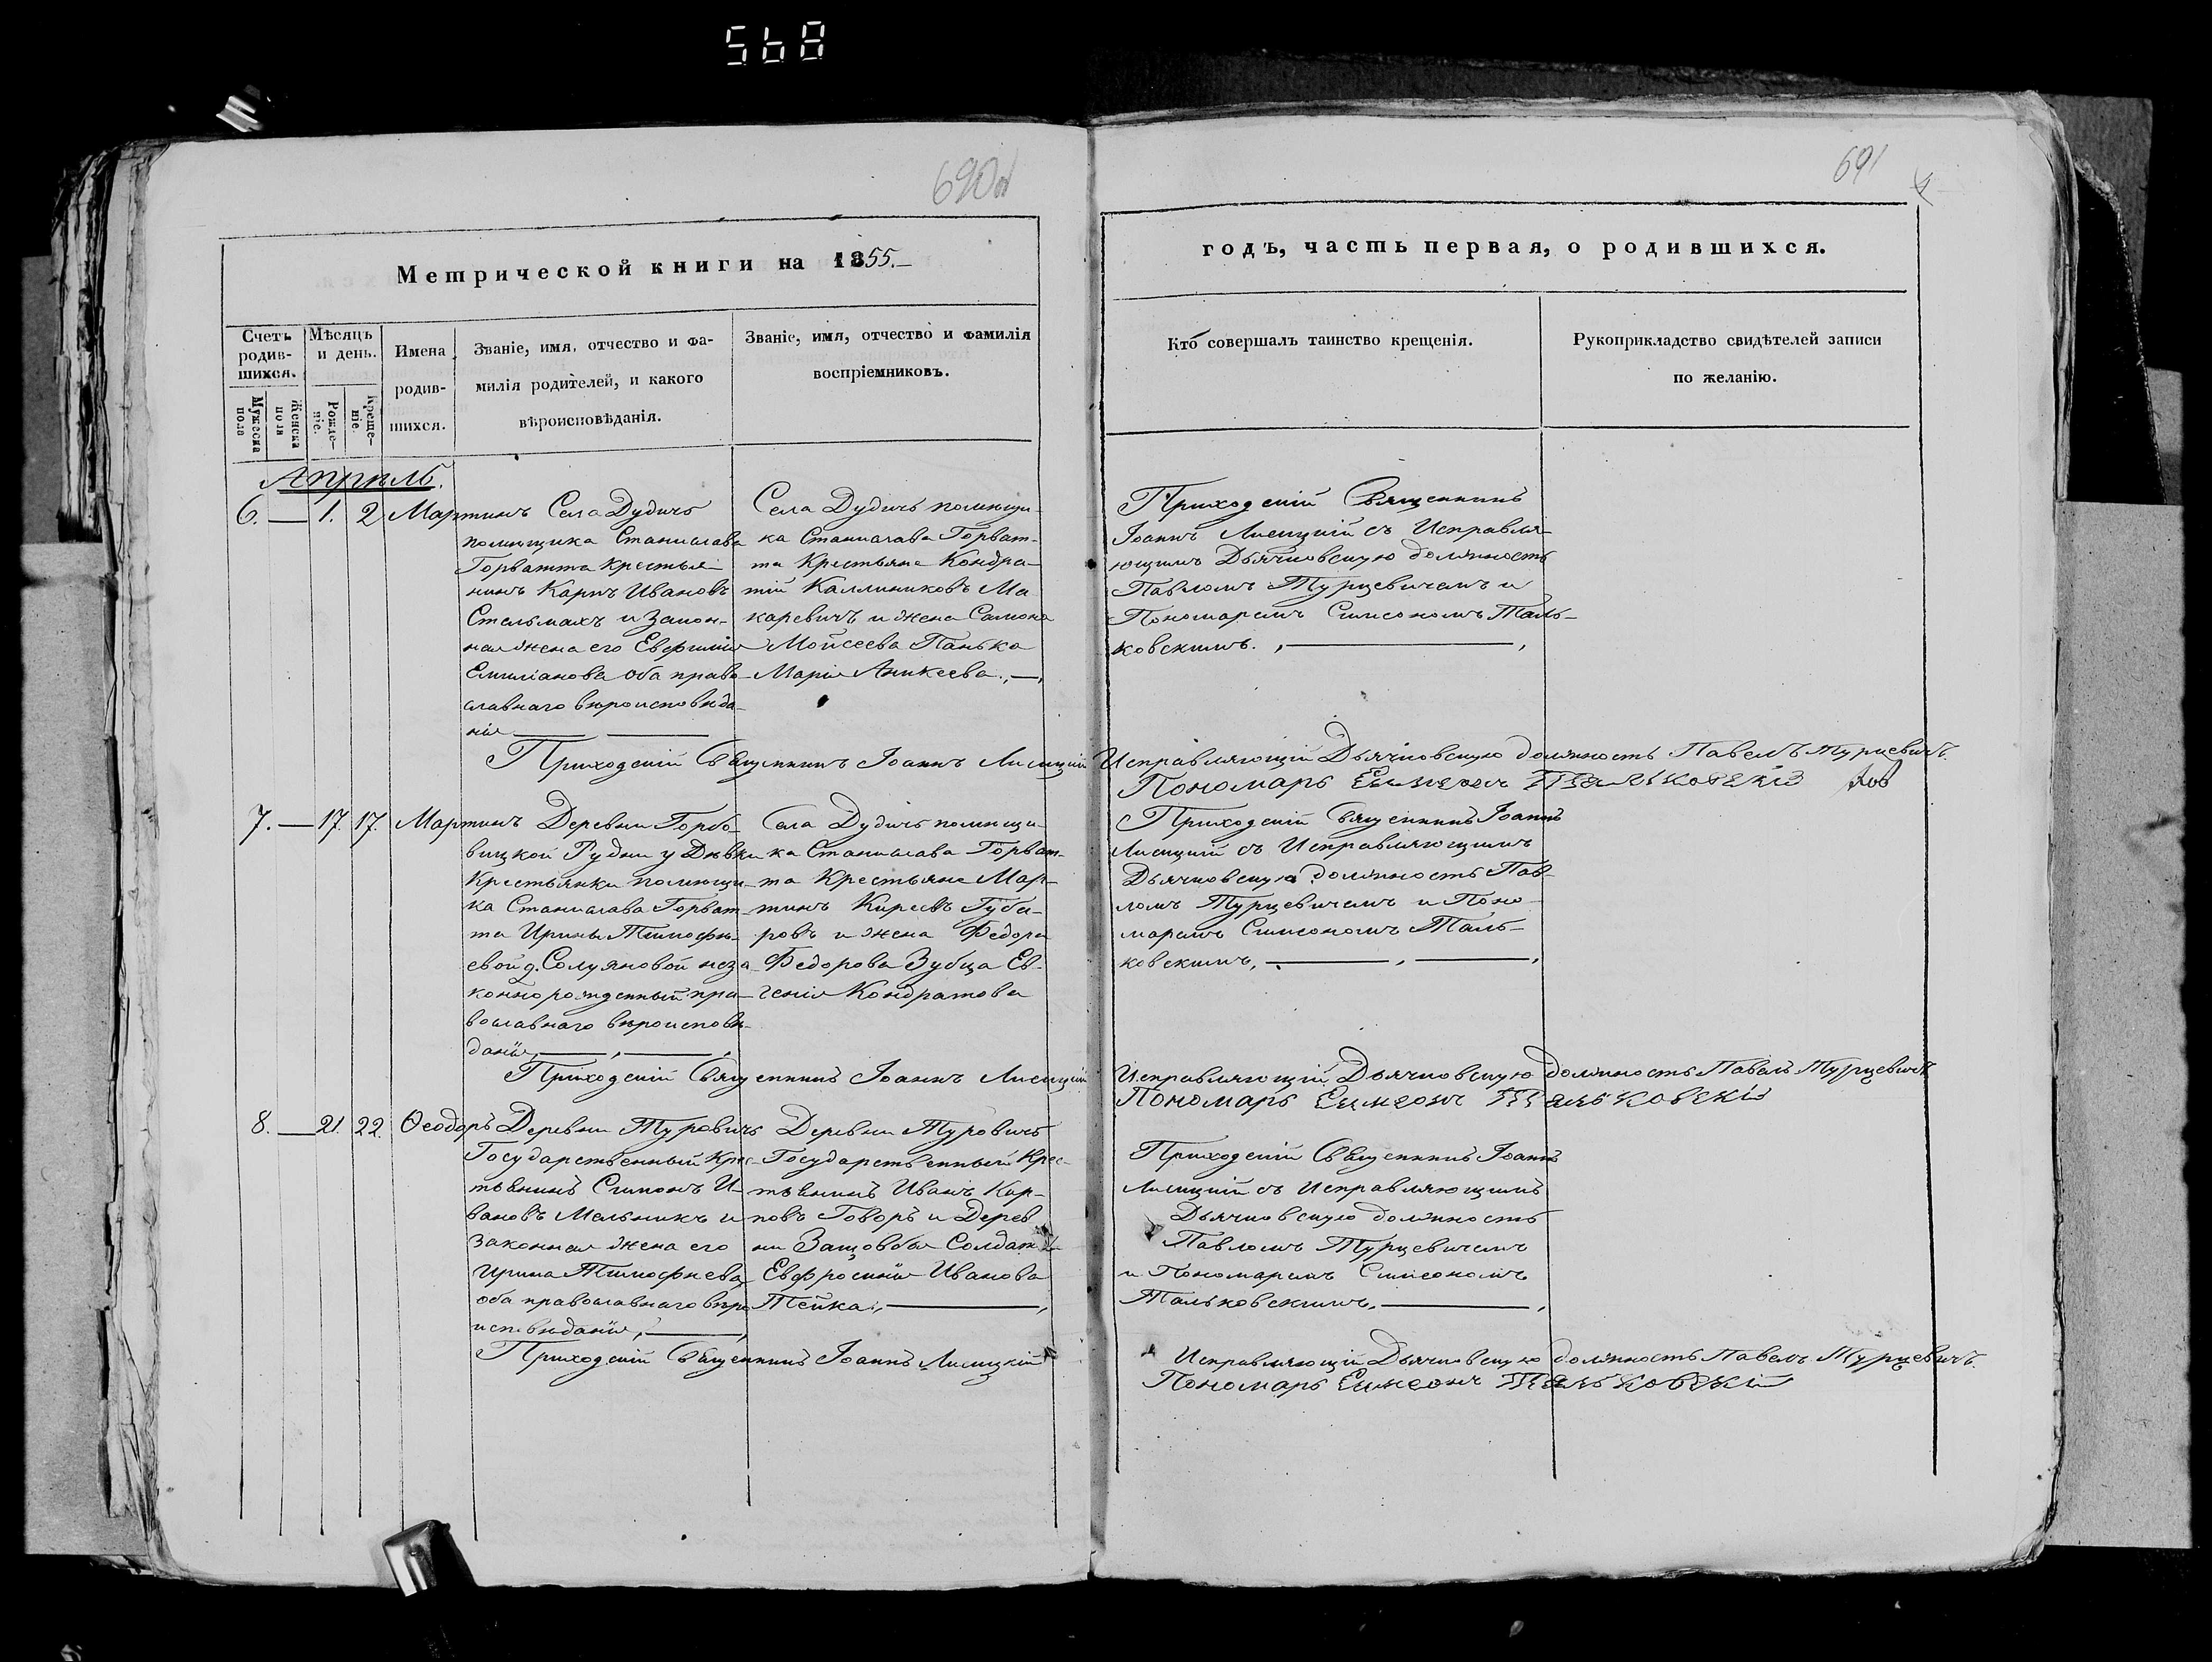 568
690об
691
Метрической книги на 1855.
годъ, часть первая, о родившихся.
Счетъ родив-шихся.
Мѣсяцъ и день.
Имена родив-шихся.
Званіе, имя, отчество и фа-
милія родителей, и какого
вѣроисповѣданія.
Званіе, имя, отчество и фамилія
воспріемниковъ.
Мужеска пола
Женска пола
Рожде-ніе.
Креще-ніе.
Кто совершалъ таинство крещенія.
Рукоприкладство свидѣтелей записи
по желанію.
Апрѣль.
6. — 1. 2 Мартинъ
Села Дудичъ
помѣщика Станислава
Горватта крестья-
нинъ Карпъ Ивановъ
Стельмахъ и закон-
ная жена его Евфимія
Емиліанова оба право-
славнаго вѣроисповѣда-
нія
Села Дудичъ помѣщи-
ка Станислава Горват-
та Крестьяне Кондра-
тій Каллиниковъ Ма
каревичъ и жена Самона
Мойсеева Панька
Марія Аникеева.
Приходскій Священникъ
Іоаннъ Лисицкій съ Исправля-
ющимъ Дьячковскую должность
Павломъ Турцевичемъ и
Пономаремъ Симеономъ Таль-
ковскимъ.
Приходскій Священникъ Іоаннъ Лисицкій
Исправляющій Дьячковскую должность Павелъ Турцевичъ.
Пономарь Симеонъ Тальковскій
7. — 17. 17. Мартинъ
Деревни Горбо-
вицкой Рудни у Дѣвки
Крестьянки помѣщи-
ка Станислава Горват-
та Ирины Тимофѣ-
евой д. Солуяновой неза-
коннорожденный пра-
вославнаго вѣроисповѣ-
данія,
Села Дудичъ помѣщи-
ка Станислава Горват-
та Крестьяне Мар-
тинъ Киреевъ Губа-
ровъ и жена Федора
Федорова Зубца Ев-
генія Кондратова
Приходскій Священникъ Іоаннъ
Лисицкій съ Исправляющимъ
Дьячковскую должность Пав-
ломъ Турцевичемъ и Поно-
маремъ Симеономъ Таль-
ковскимъ,
Приходскій Священникъ Іоаннъ Лисицкій
Исправляющій Дьячковскую должность Павелъ Турцевичъ
Пономарь Симеонъ Тальковскій
8. — 21. 22. Ѳеодоръ
Деревни Туровичъ
Государственный Крес-
тьянинъ Симонъ И-
вановъ Мельникъ и
законная жена его
Ирина Тимофѣева
оба православнаго вѣро
исповѣданія,
Деревни Туровичъ
Государственный Крес-
тьянинъ Иванъ Кар-
повъ Говоръ и Дерев
ни Солдатка
Евфросинія Иванова
Тейка,
Приходскій Священникъ Іоаннъ
Лисицкій съ Исправляющимъ
Дьячковскую должность
Павломъ Турцевичемъ
и Пономаремъ Симеономъ
Тальковскимъ,
Приходскій Священникъ Іоаннъ Лисицкій
Исправляющій Дьячковскую должность Павелъ Турцевичъ.
Пономарь Симеонъ Тальковскій